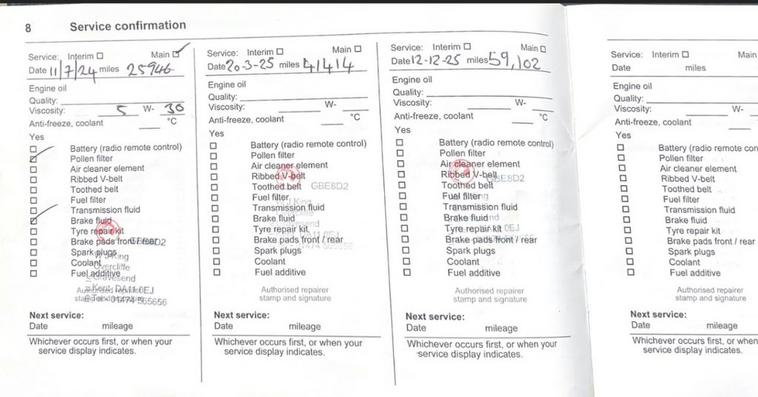 8 Service confirmation
Service: Interim ☐ Main ☑
Date 11/7/24 miles 25946
Engine oil
Quality:
Viscosity: 5 W- 30
Anti-freeze, coolant °C
Yes
☐ Battery (radio remote control)
☑ Pollen filter
☐ Air cleaner element
☐ Ribbed V-belt
☐ Toothed belt
☐ Fuel filter
☐ Transmission fluid
☑ Brake fluid
☐ Tyre repair kit
☐ Brake pads front / rear
☐ Spark plugs
☐ Coolant
☐ Fuel additive
Overcliffe
Gravesend
Kent DA11 0EJ
Authorised repairer
stamp and signature
Tel: 01474 565656
Next service:
Date mileage
Whichever occurs first, or when your
service display indicates.
Service: Interim ☐ Main ☐
Date 20-3-25 miles 41414
Engine oil
Quality:
Viscosity: W-
Anti-freeze, coolant °C
Yes
☐ Battery (radio remote control)
☐ Pollen filter
☐ Air cleaner element
☐ Ribbed V-belt
☐ Toothed belt GBE8D2
☐ Fuel filter
☐ Transmission fluid
☐ Brake fluid
☐ Tyre repair kit
☐ Brake pads front / rear
☐ Spark plugs
☐ Coolant
☐ Fuel additive
Authorised repairer
stamp and signature
Next service:
Date mileage
Whichever occurs first, or when your
service display indicates.
Service: Interim ☐ Main ☐
Date 12-12-25 miles 59,102
Engine oil
Quality:
Viscosity: W-
Anti-freeze, coolant °C
Yes
☐ Battery (radio remote control)
☐ Pollen filter
☐ Air cleaner element
☐ Ribbed V-belt GBE8D2
☐ Toothed belt
☐ Fuel filter
☐ Transmission fluid
☐ Brake fluid
☐ Tyre repair kit 0EJ
☐ Brake pads front / rear
☐ Spark plugs
☐ Coolant
☐ Fuel additive
Authorised repairer
stamp and signature
Next service:
Date mileage
Whichever occurs first, or when your
service display indicates.
Service: Interim ☐ Main
Date miles
Engine oil
Quality:
Viscosity: W-
Anti-freeze, coolant
Yes
☐ Battery (radio remote con
☐ Pollen filter
☐ Air cleaner element
☐ Ribbed V-belt
☐ Toothed belt
☐ Fuel filter
☐ Transmission fluid
☐ Brake fluid
☐ Tyre repair kit
☐ Brake pads front / rear
☐ Spark plugs
☐ Coolant
☐ Fuel additive
Authorised repairer
stamp and signature
Next service:
Date mileage
Whichever occurs first, or when
service display indicates.